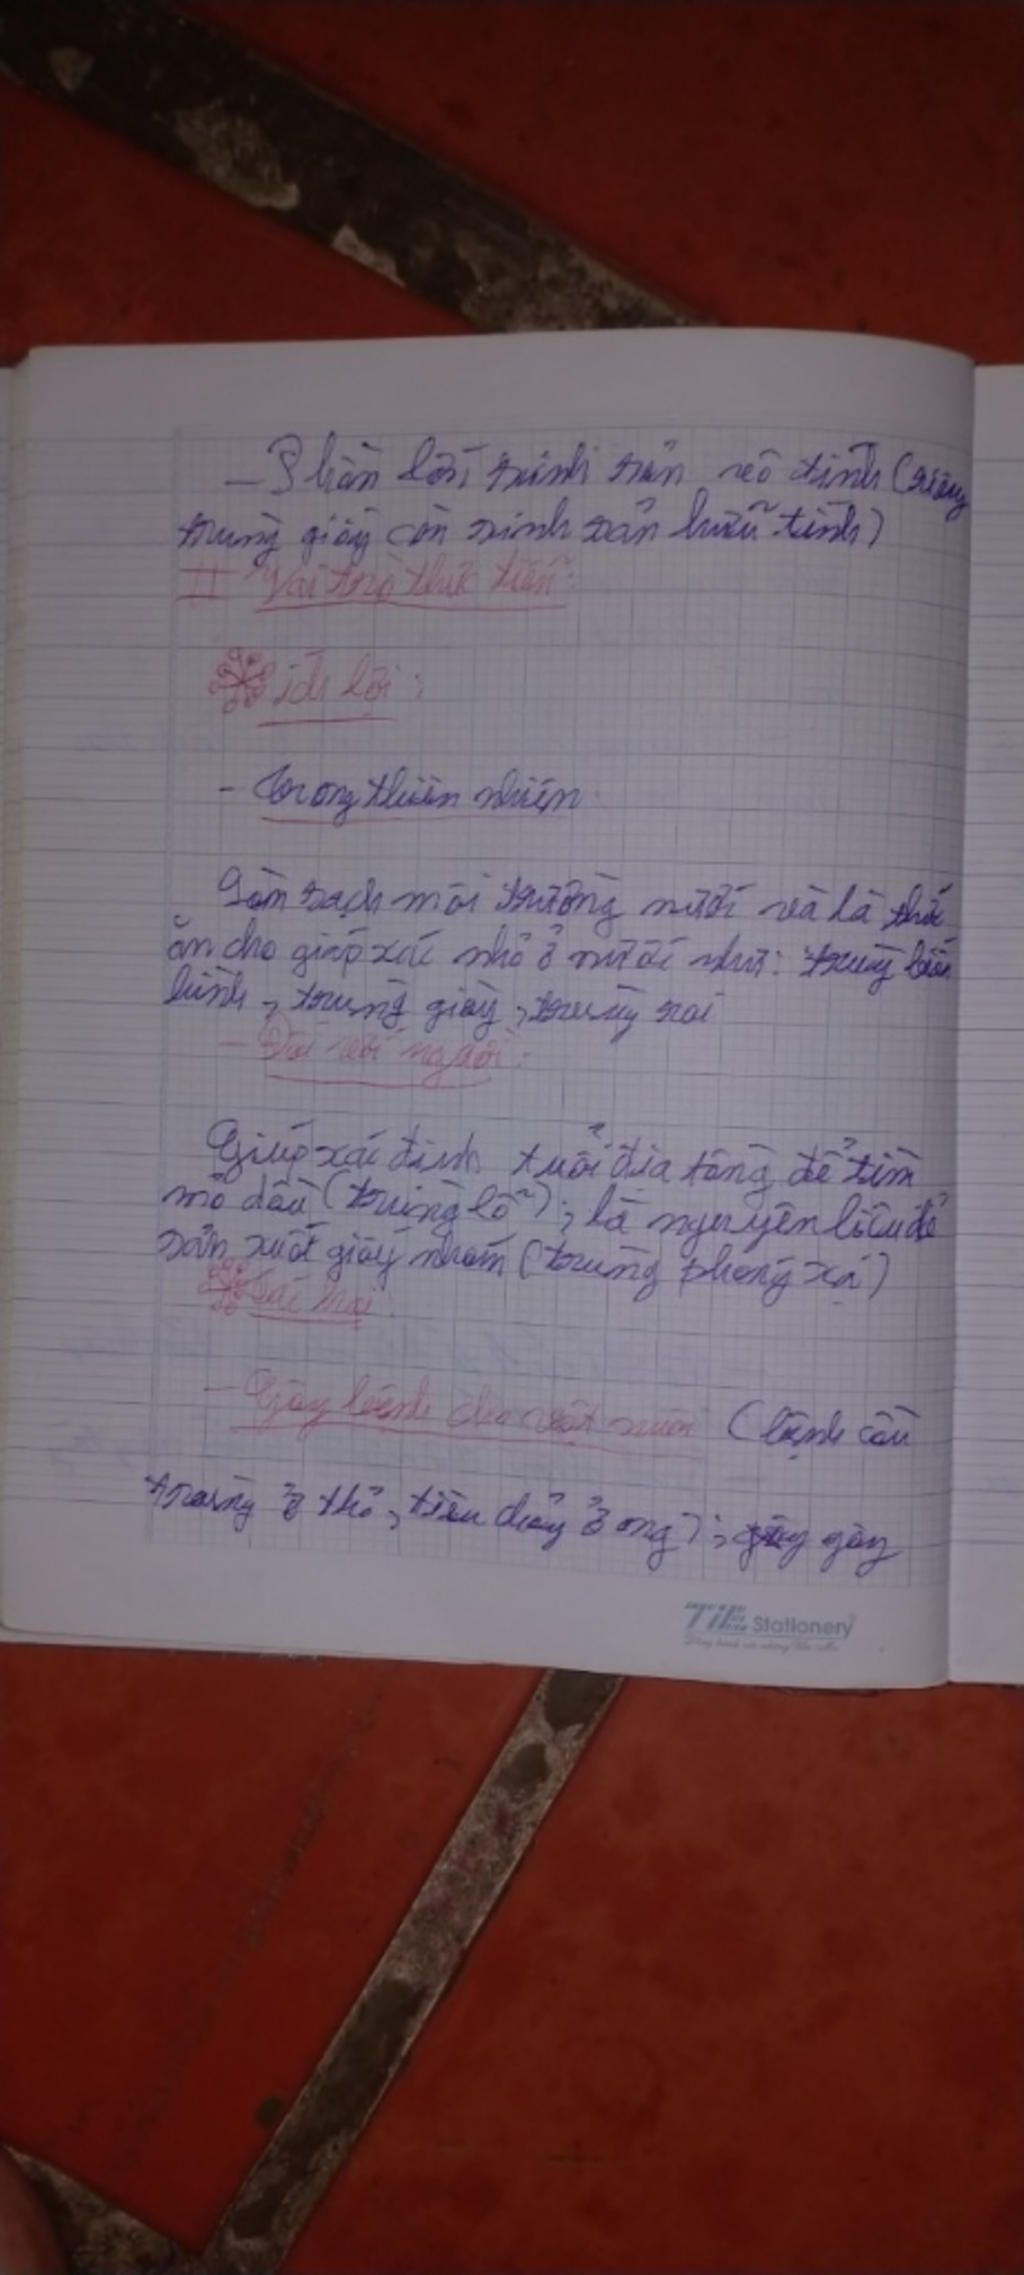 - Phần lớn sinh sản vô tính (riêng
trùng giày còn sinh sản hữu tính)
II Vai trò thực tiễn:
ích lợi:
- Trong thiên nhiên.
Làm sạch môi trường nước và là thức
ăn cho giáp xác nhỏ ở nước như: trùng biến
hình, trùng giày, trùng roi
- Đối với người:
Giúp xác định tuổi địa tầng để tìm
mỏ dầu (trùng lỗ); là nguyên liệu để
sản xuất giấy nhám (trùng phóng xạ)
Tác hại.
- Gây bệnh cho vật nuôi (bệnh cầu
trùng ở thỏ, tiêu chảy ở ong); gây
TiTi Stationery